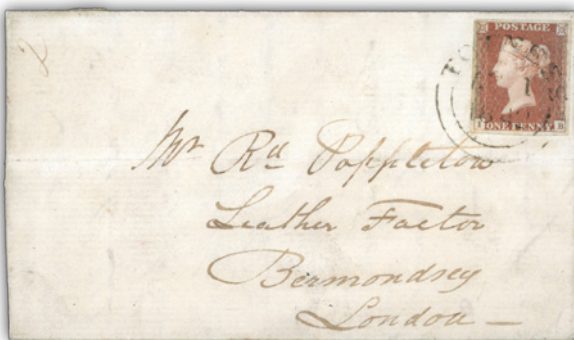 POSTAGE
ONE PENNY
Mr Rd Poppleton
Leather Factor
Bermondsey
London —